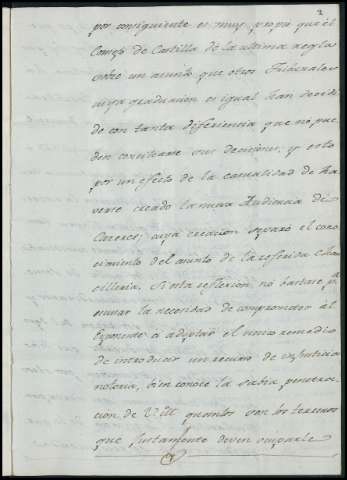 2
por consiguiente es muy propio que el
Consejo de Castilla dé la ultima regla
sobre un asunto que otros Tribunales
cuya graduacion es igual han decidi
do con tanta diferencia que no pue
den conciliarse sus decisiones, y esto
por un efecto de la casualidad de ha
verse creado la nueva Audiencia de
Caceres, cuya creacion separó el cono
cimiento del asunto de la referida Chan
cilleria. Si esta reflexion no bastare, p.ª
evitar la necesidad de comprometer al
Exponente a adoptar el unico remedio
de introducir un recurso de injusticia
notoria, bien conoce la sabia penetra
cion de V.M. quantos son los terceros
que justamente deven ocuparle